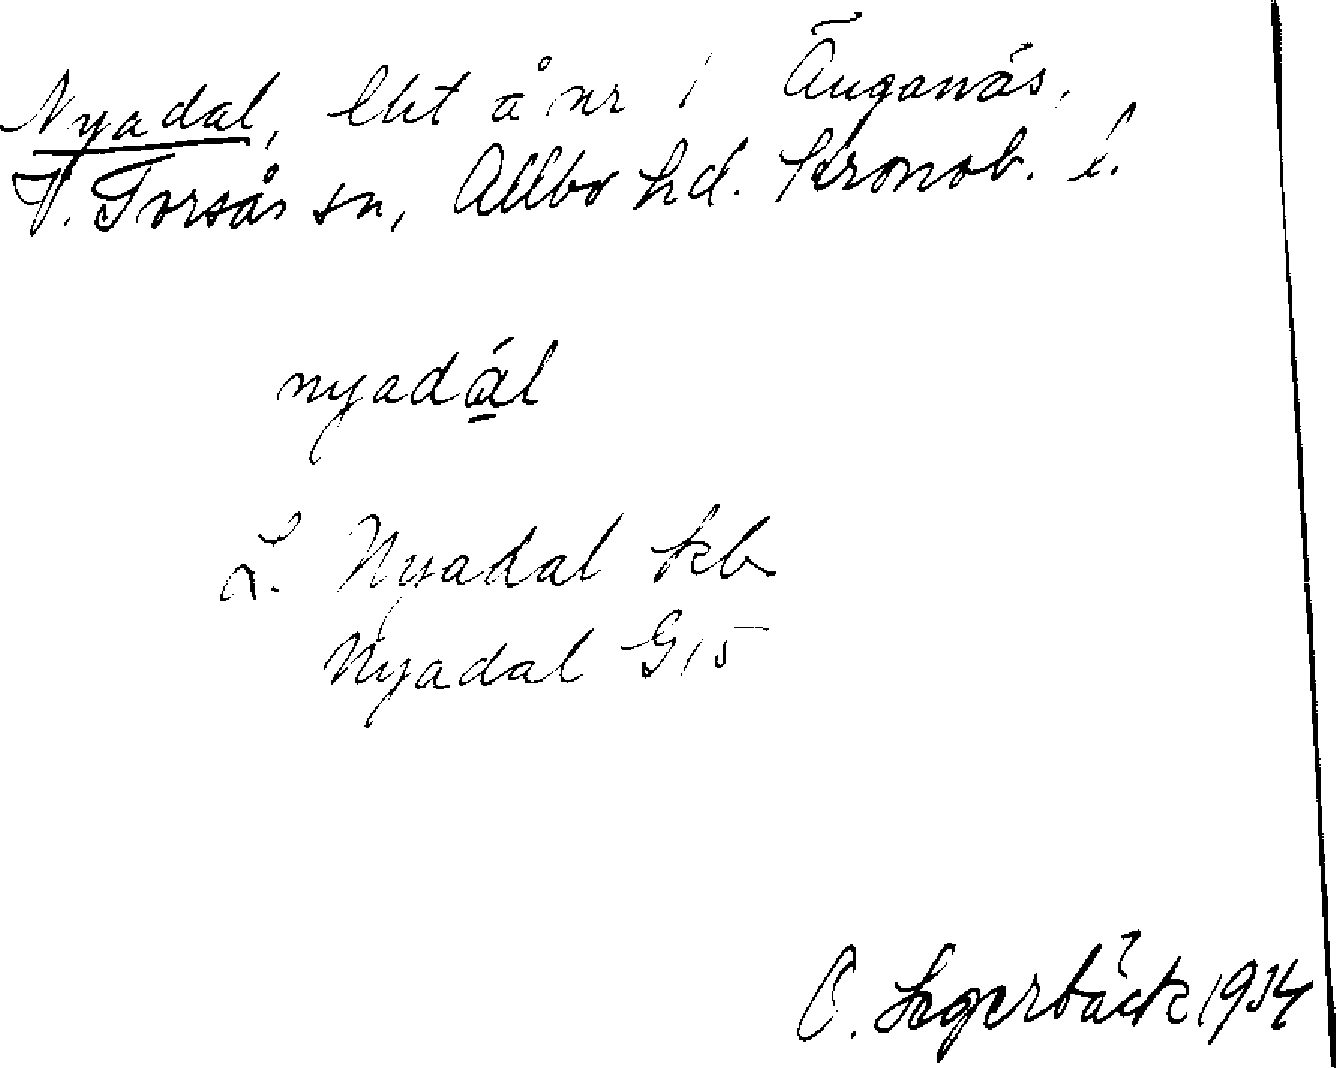 Nyadal, lht å nr 1 Änganäs,
V. Torsås sn, Allbo hd. Kronob. l.
nyadál
L. Nyadal kb
Nyadal G15
O. Segerbäck 1934